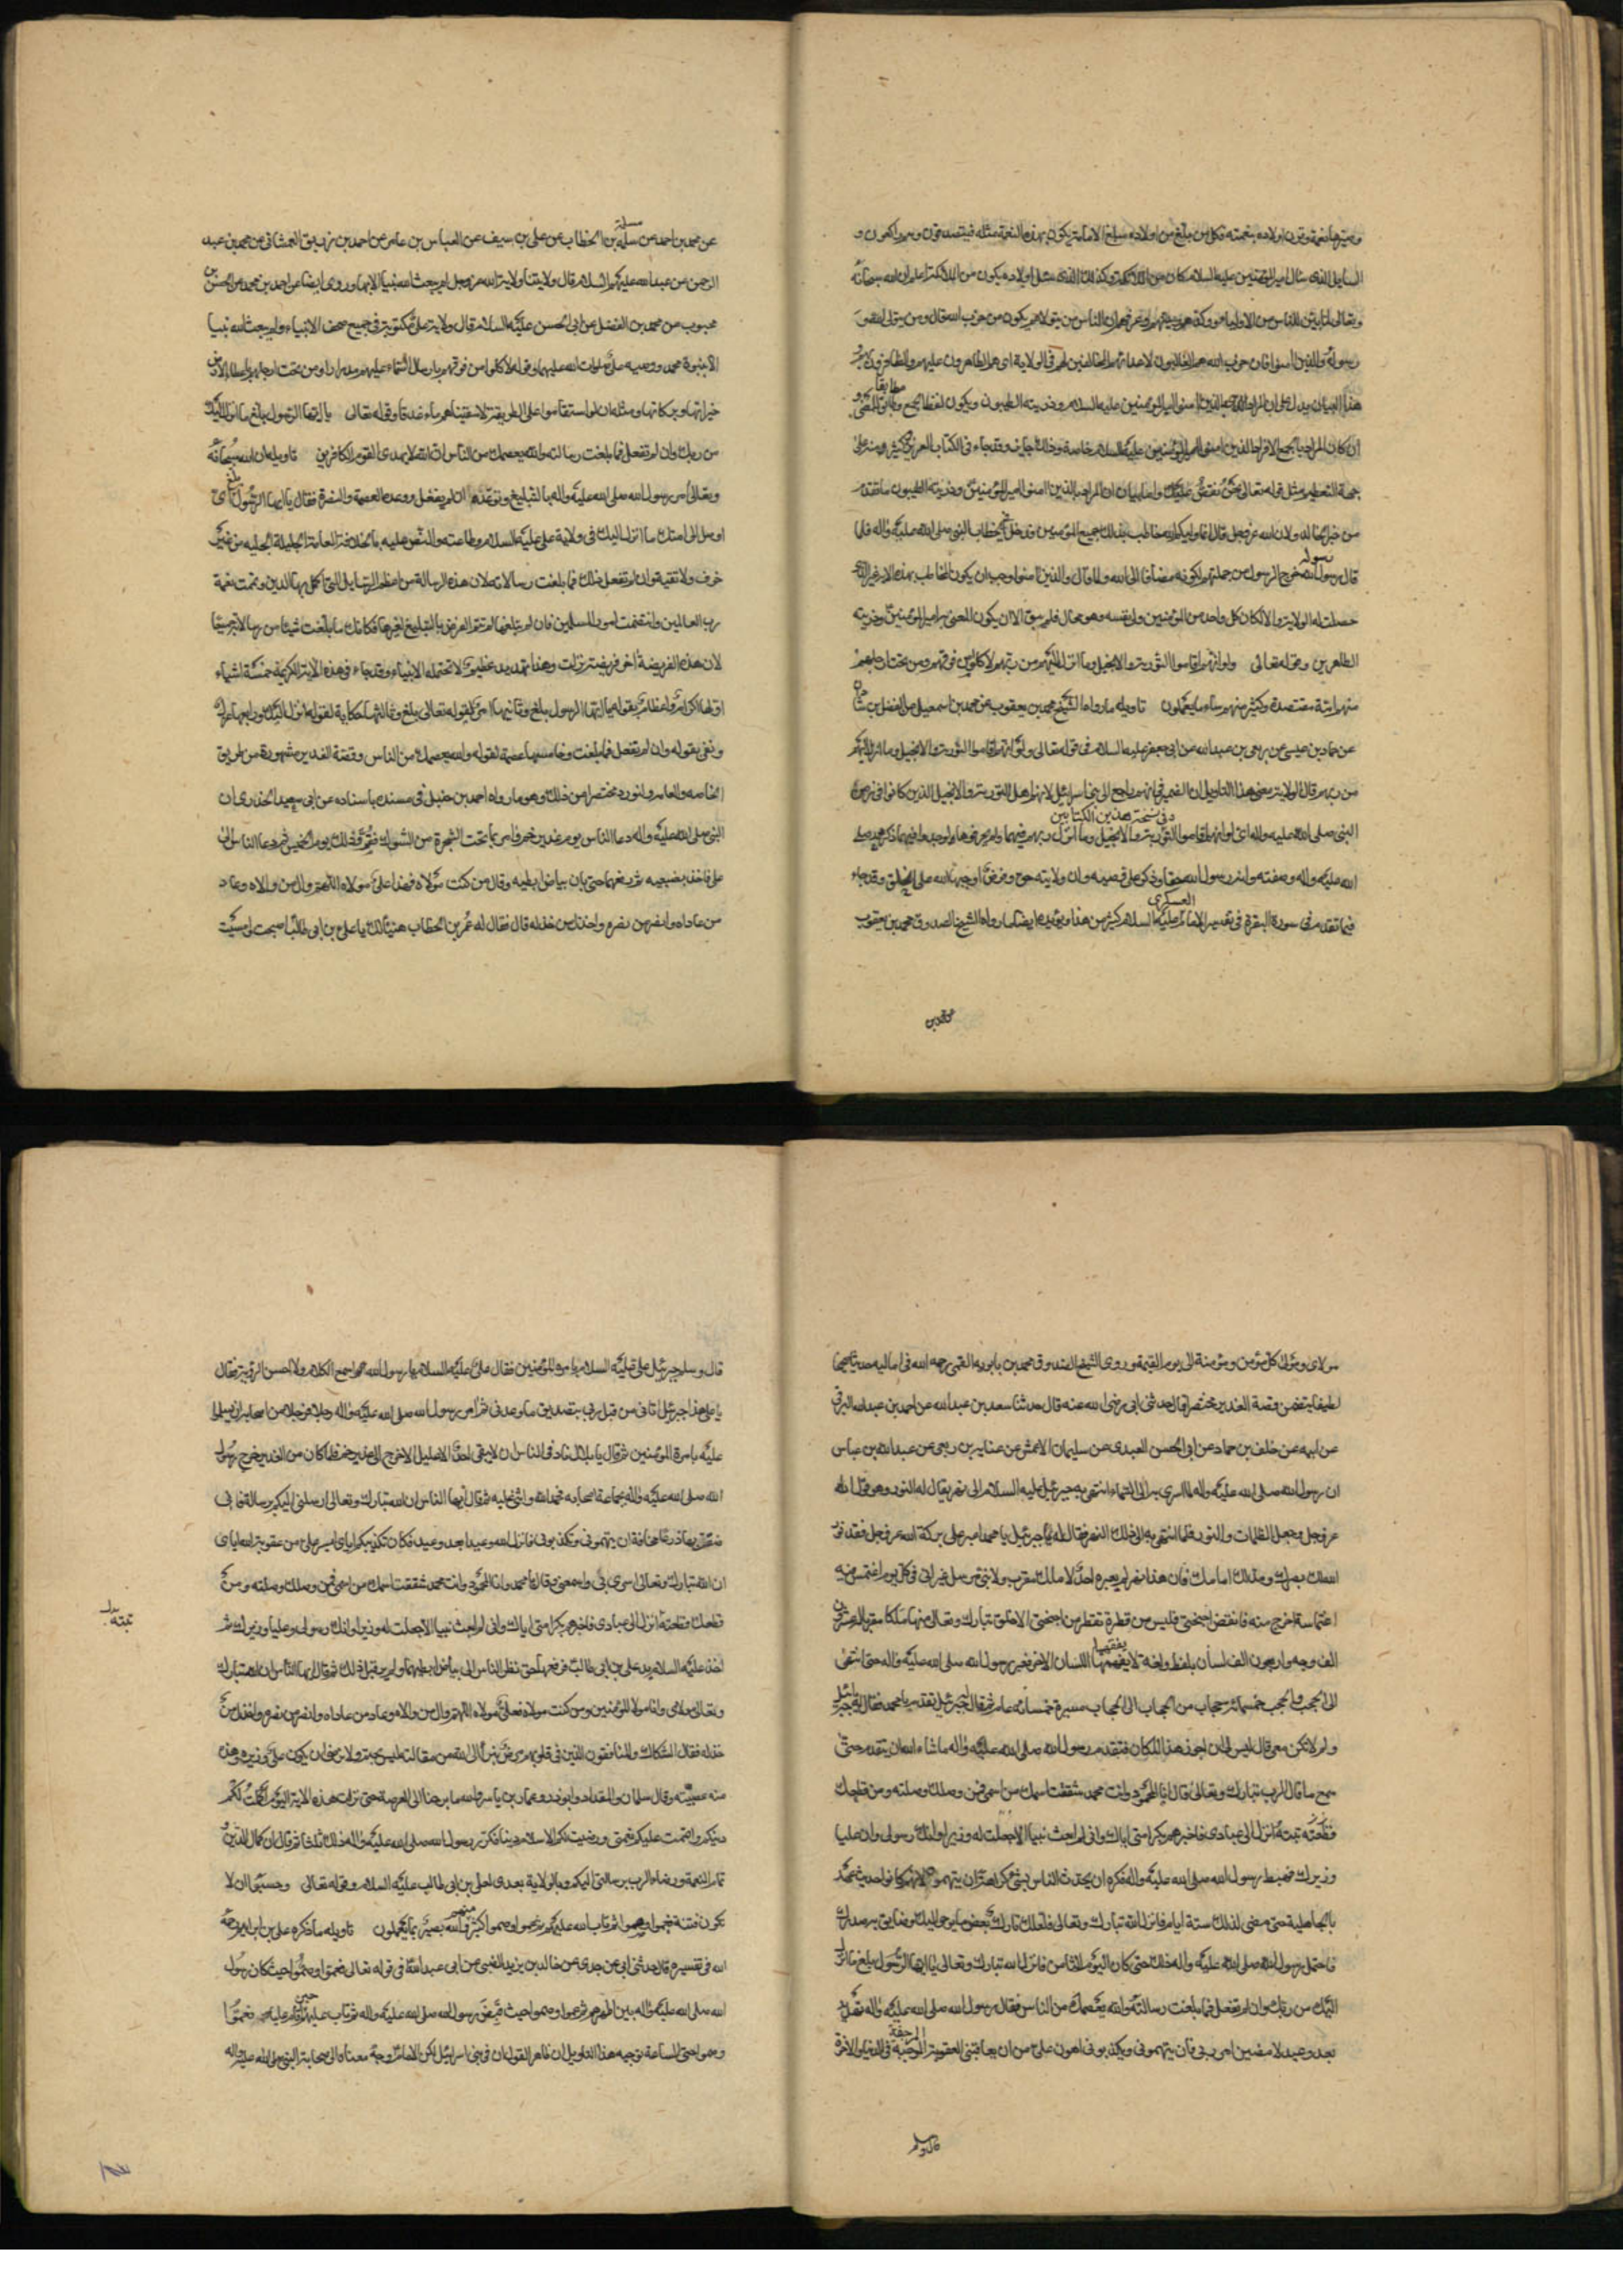 وصيرها نعمة وقرن اولاده بنعمته فكل من بلغ من اولاده مبلغ الامامة يكون بهذه النعمة مثله فيتصدقون وهم راكعون و
السايل الذى سال امير المؤمنين عليه السلام كان من الملائكة وكذلك الذى يسئل اولاده يكون من الملائكة اعلم ان الله سبحانه
وتعالى لما بين للناس من الاوليا
رسوله والذين امنوا فان حزب الله هم الغالبون لاعدائهم المخالفين لهم فى الولاية اى هم الظاهرون عليهم والظافرون
هذا البيان يدل على ان المراد بالذين امنوا امير المؤمنين عليه السلام وذريته الطيبون ويكون لفظ الجمع مطابقا
ان كان المراد بالجمع الافراد الذين امنوا امير المؤمنين عليه السلام خاصة وذلك جايز وقد جاء فى الكتاب العزيز كثير ومنه على
جهة التعظيم مثل قوله تعالى نحن نقص عليك واما بيان ان المراد بالذين امنوا امير المؤمنين وذريته الطيبون ما تقدم
من خبر ولان الله عز وجل قال انما وليكم الله خاطب بذلك جميع المؤمنين ودخل فى الخطاب النبى صلى الله عليه واله فلما
قال ورسوله خرج الرسول من جملتهم لكونه مضافا الى الله ولما قال والذين امنوا وجب ان يكون المخاطب بهذه الاية غير الذى
حصلت له الولاية والا لكان كل واحد من المؤمنين ولى نفسه وهو محال فلم يبق الا ان يكون المعنى به امير المؤمنين وذريته
الطاهرين وقوله تعالى ولو انهم اقاموا التورية والانجيل وما انزل اليهم من ربهم لاكلوا من فوقهم ومن تحت ارجلهم
منهم امة مقتصدة وكثير منهم ساء ما يعملون تاويله ما رواه الشيخ محمد بن يعقوب عن محمد بن اسمعيل عن الفضل بن شاذان
عن حماد بن عيسى عن ربعى بن عبد الله عن ابى جعفر عليه السلام فى قوله تعالى ولو انهم اقاموا التورية والانجيل وما انزل اليهم
من ربهم قال الولاية معنى هذا التاويل ان الضمير فى انهم راجع الى بنى اسرائيل لانهم اهل التورية والانجيل الذين كانوا فى زمن
وفى نسخة هذين الكتابين
النبى صلى الله عليه واله اى لو انهم اقاموا التورية والانجيل وما انزل ربهم فيهما ولم يحرفوها لوجدوا فيهما ذكر محمد صلى
الله عليه واله وصفته وانه رسول الله حقا وذكر على وصيه وان ولايته حق وفرض اوجبها الله على الخلق وقد جاء
فيما تقدم فى سورة البقرة فى تفسير الامام العسكرى عليه السلام كثير من هذا ويؤيده ايضا ما رواه الشيخ الصدوق محمد بن يعقوب
عن محمد بن
عن محمد بن احمد عن سلمة بن الخطاب عن على بن سيف عن العباس بن عامر عن احمد بن رزيق الغمشانى عن محمد بن عبد
الرحمن عن عبد الله عليه السلام قال ولايتنا ولاية الله عز وجل لم يبعث الله نبيا الا بها وروى ايضا عن احمد بن محمد عن الحسن بن
محبوب عن محمد بن الفضيل عن ابى الحسن عليه السلام قال ولاية على مكتوبة فى جميع صحف الانبياء ولم يبعث الله نبيا
الا بنبوة محمد ووصيه على صلوات الله عليهما وقوله لاكلوا من فوقهم بارسال السماء عليهم مدرارا ومن تحت ارجلهم باعطاء الارض
خيراتها وبركاتها ومثله ان لو استقاموا على الطريقة لاسقيناهم ماء غدقا وقوله تعالى يا ايها الرسول بلغ ما انزل اليك
من ربك وان لم تفعل فما بلغت رسالته والله يعصمك من الناس ان الله لا يهدى القوم الكافرين تاويله ان الله سبحانه
وتعالى امر رسول الله صلى الله عليه واله بالتبليغ وتوعده ان لم يفعل ووعده العصمة والنصرة فقال يا ايها الرسول بلغ اى
اوصل الى امتك ما انزل اليك فى ولاية على عليه السلام وطاعته والنص عليه بالخلافة العامة الجليلة الجليه من غير
خوف ولا تقية وان لم تفعل ذلك فما بلغت رسالاته لان هذه الرسالة من اعظم الرسايل التى اكمل بها الدين وتمت نعمة
رب العالمين وانتظمت امور المسلمين فان لم تبلغها لم تتم الغرض بالتبليغ لغيرها فكانك ما بلغت شيئا من رسالاته جميعا
لان هذه الفريضة اخر فريضة نزلت وهذا تهديد عظيم لا تحتمله الانبياء وقد جاء فى هذه الاية الكريمة خمسة اشياء
اولها اكرام واعظام بقوله يا ايها الرسول بلغ وثانيها امر لقوله تعالى بلغ وثالثها حكاية لقوله ما انزل اليك ورابعها عزل
ونفى بقوله وان لم تفعل فما بلغت وخامسها عصمة لقوله والله يعصمك من الناس وقصة الغدير مشهورة من طريق
الخاصه والعامه ولنورد مختصرا من ذلك وهو ما رواه احمد بن حنبل فى مسنده باسناده عن ابى سعيد الخدرى ان
النبى صلى الله عليه واله دعا الناس يوم غدير خم فامر بما تحت الشجرة من الشوك فقم وذلك يوم الخميس ثم دعا الناس الى
على فاخذ بضبعيه ثم رفعهما حتى بان بياض ابطيه وقال من كنت مولاه فهذا على مولاه اللهم وال من والاه وعاد
من عاداه وانصر من نصره واخذل من خذله قال فقال له عمر بن الخطاب هنيئا لك يا على بن ابى طالب اصبحت وامسيت
مولاى ومولى كل مؤمن ومؤمنة الى يوم القيمة وروى الشيخ الصدوق محمد بن بابويه القمى رحمه الله فى اماليه حديثا صحيحا
لطيفا يتضمن قصة الغدير مختصرا قال حدثنى ابى رضى الله عنه قال حدثنا سعد بن عبد الله عن احمد بن عبد الله البرقى
عن ابيه عن خلف بن حماد عن ابى الحسن العبدى عن سليمان الاعمش عن عبايه بن ربعى عن عبد الله بن عباس
ان رسول الله صلى الله عليه واله لما اسرى به الى السماء انتهى به جبرئيل عليه السلام الى نهر يقال له النور وهو قول الله
عز وجل وجعل الظلمات والنور فلما انتهى به الى ذلك النهر فقال له جبرئيل يا محمد اعبر على بركة الله عز وجل فقد نور
الله لك بصرك ومد لك امامك فان هذا نهر لم يعبره احد لا ملك مقرب ولا نبى مرسل غير انى فى كل يوم اغتمس فيه
اغتماسة اخرج منه فانفض اجنحتى فليس من قطرة تقطر من اجنحتى الا خلق تبارك وتعالى منها ملكا مقربا له عشرون
الف وجه واربعون الف لسان بلفظ ولغة لا يفقهها اللسان الاخر فعبر رسول الله صلى الله عليه واله حتى انتهى
الى الحجب والحجب خمسمائة حجاب من الحجاب الى الحجاب مسيرة خمسمائه عام ثم قال جبرئيل تقدم يا محمد فقال له يا جبرئيل
ولم لا تكن معى قال ليس لى ان اجوز هذا المكان فتقدم رسول الله صلى الله عليه واله ما شاء الله ان يتقدم حتى
سمع ما قال الرب تبارك وتعالى قال انا المحمود وانت محمد شققت اسمك من اسمى فمن وصلك وصلته ومن قطعك
قطعته بتته انزل الى عبادى فاخبرهم بكرامتى اياك وانى لم ابعث نبيا الا جعلت له وزيرا وانك رسولى وان عليا
وزيرك فهبط رسول الله صلى الله عليه واله فكره ان يحدث الناس بشئ كراهة ان يتهموه لانهم كانوا حديث عهد
بالجاهلية حتى مضى لذلك ستة ايام فانزل الله تبارك وتعالى فلعلك تارك بعض ما يوحى اليك وضايق به صدرك
فاحتمل رسول الله صلى الله عليه واله ذلك حتى كان اليوم الثامن فانزل الله تبارك وتعالى يا ايها الرسول بلغ ما انزل
اليك من ربك وان لم تفعل فما بلغت رسالته والله يعصمك من الناس فقال رسول الله صلى الله عليه واله تهديد
بعد وعيد لامضين امر ربى فان يتهمونى ويكذبونى اهون على من ان يعاقبنى العقوبة الموجعة فى الدنيا والاخرة
قال وسلم
قال وسلم جبرئيل على على عليه السلام بامرة المؤمنين فقال على عليه السلام يا رسول الله اسمع الكلام ولا احس الرؤية فقال
يا على هذا جبرئيل اتانى من قبل ربى بتصديق ما وعدنى ثم امر رسول الله صلى الله عليه واله رجلا فرجلا من اصحابه ان يسلموا
عليه بامرة المؤمنين ثم قال يا بلال ناد فى الناس ان لا يبقى احد الا عليل الا خرج الى غدير خم فلما كان من الغد خرج رسول
الله صلى الله عليه واله بجماعة اصحابه فحمد الله واثنى عليه ثم قال ايها الناس ان الله تبارك وتعالى ارسلنى اليكم برسالة وانى
ضقت بها ذرعا مخافة ان يتهمونى وتكذبونى فانزل الله وعيدا بعد وعيد فكان تكذيبكم اياى ايسر على من عقوبة الله اياى
ان الله تبارك وتعالى اسرى بى واسمعنى وقال يا محمد انا المحمود وانت محمد شققت اسمك من اسمى فمن وصلك وصلته ومن
قطعك قطعته انزل الى عبادى فاخبرهم بكرامتى اياك وانى لم ابعث نبيا الا جعلت له وزيرا وانك رسولى وعليا وزيرك ثم
بتته
اخذ عليه السلام بيد على بن ابى طالب فرفعها حتى نظر الناس الى بياض ابطيهما ولم ير قبل ذلك ثم قال ايها الناس ان الله تبارك
وتعالى مولاى وانا مولى المؤمنين ومن كنت مولاه فعلى مولاه اللهم وال من والاه وعاد من عاداه وانصر من نصره واخذل من
خذله فقال الشكاك والمنافقون الذين فى قلوبهم مرض نبرأ الى الله من مقالته ليس بحتم ولا نرضى ان يكون على وزيره وهذه
منه عصبية وقال سلمان والمقداد وابوذر وعمار بن ياسر والله ما برحنا العرصة حتى نزلت هذه الاية اليوم اكملت لكم
دينكم واتممت عليكم نعمتى ورضيت لكم الاسلام دينا فكرر رسول الله صلى الله عليه واله ذلك ثلثا ثم قال ان كمال الدين و
تمام النعمة ورضاء الرب برسالتى اليكم وبالولاية بعدى لعلى بن ابى طالب عليه السلام وقوله تعالى وحسبوا ان لا
تكون فتنة فعموا وصموا ثم تاب الله عليهم ثم عموا وصموا كثير منهم والله بصير بما يعملون تاويله ما ذكره على بن ابراهيم رحمه
الله فى تفسيره قال حدثنى ابى عن جدى عن خالد بن يزيد الضبى عن ابى عبد الله فى قوله تعالى فعموا وصموا حيث كان رسول
الله صلى الله عليه واله بين اظهرهم ثم عموا وصموا حيث قبض رسول الله صلى الله عليه واله ثم تاب عليهم حين اقام عليهم فعموا
وصموا حتى الساعة توجيه هذا التاويل ان ظاهر القول ان فى بنى اسرائيل لكن الامام وجه معناه الى صحابة النبى صلى الله عليه واله